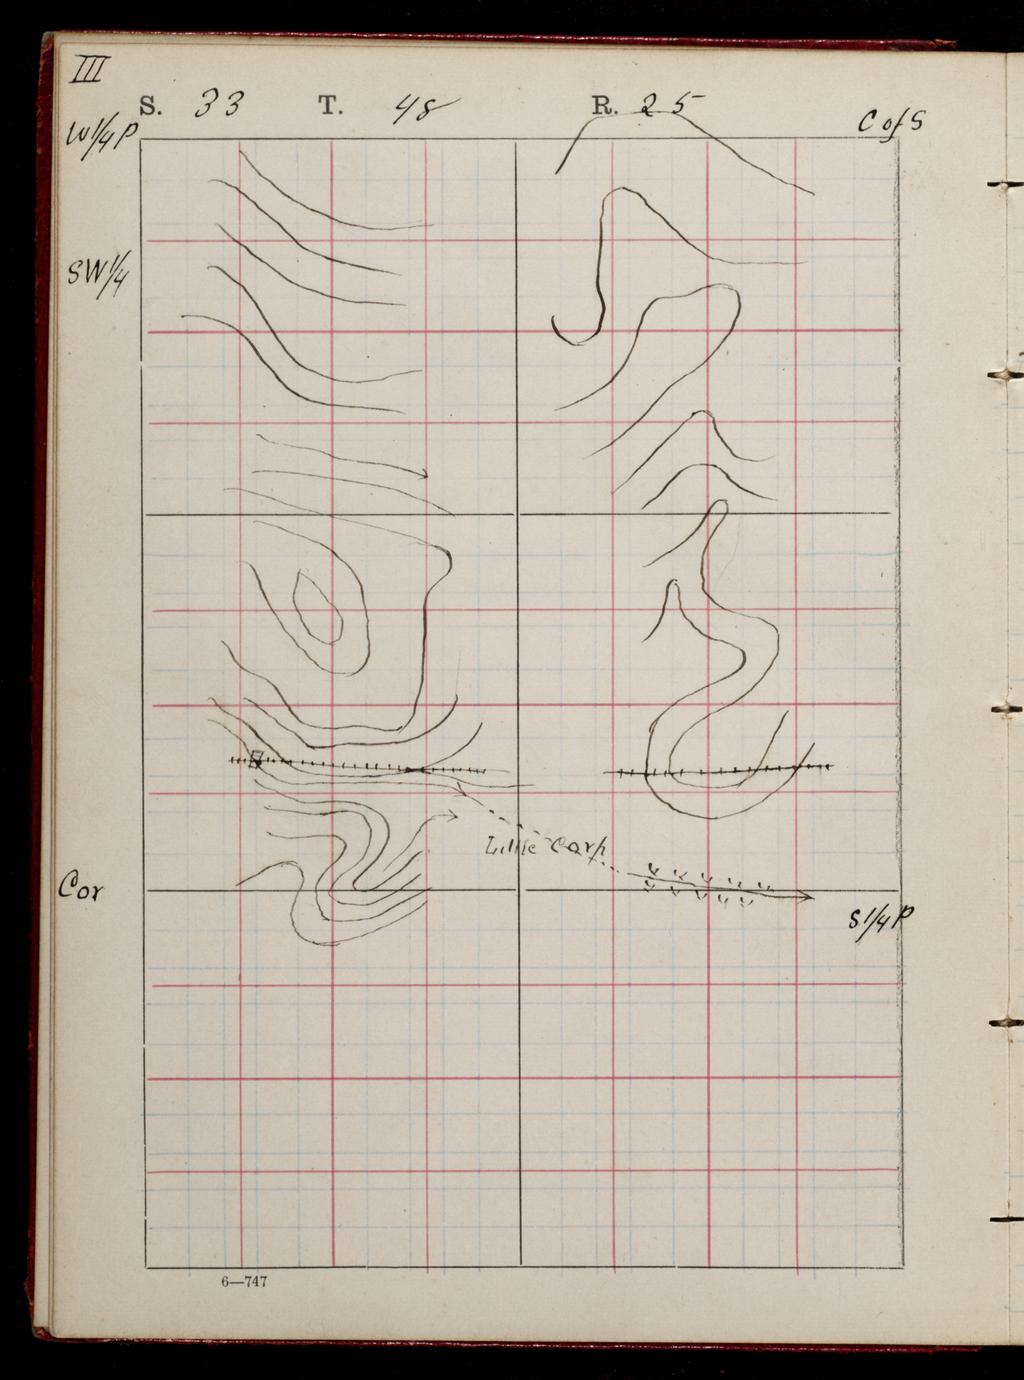 III
S. 33 T. 48 R. 25
W 1/4 P
C of S
SW 1/4
Little Carp
Cor
S 1/4 P
6—747